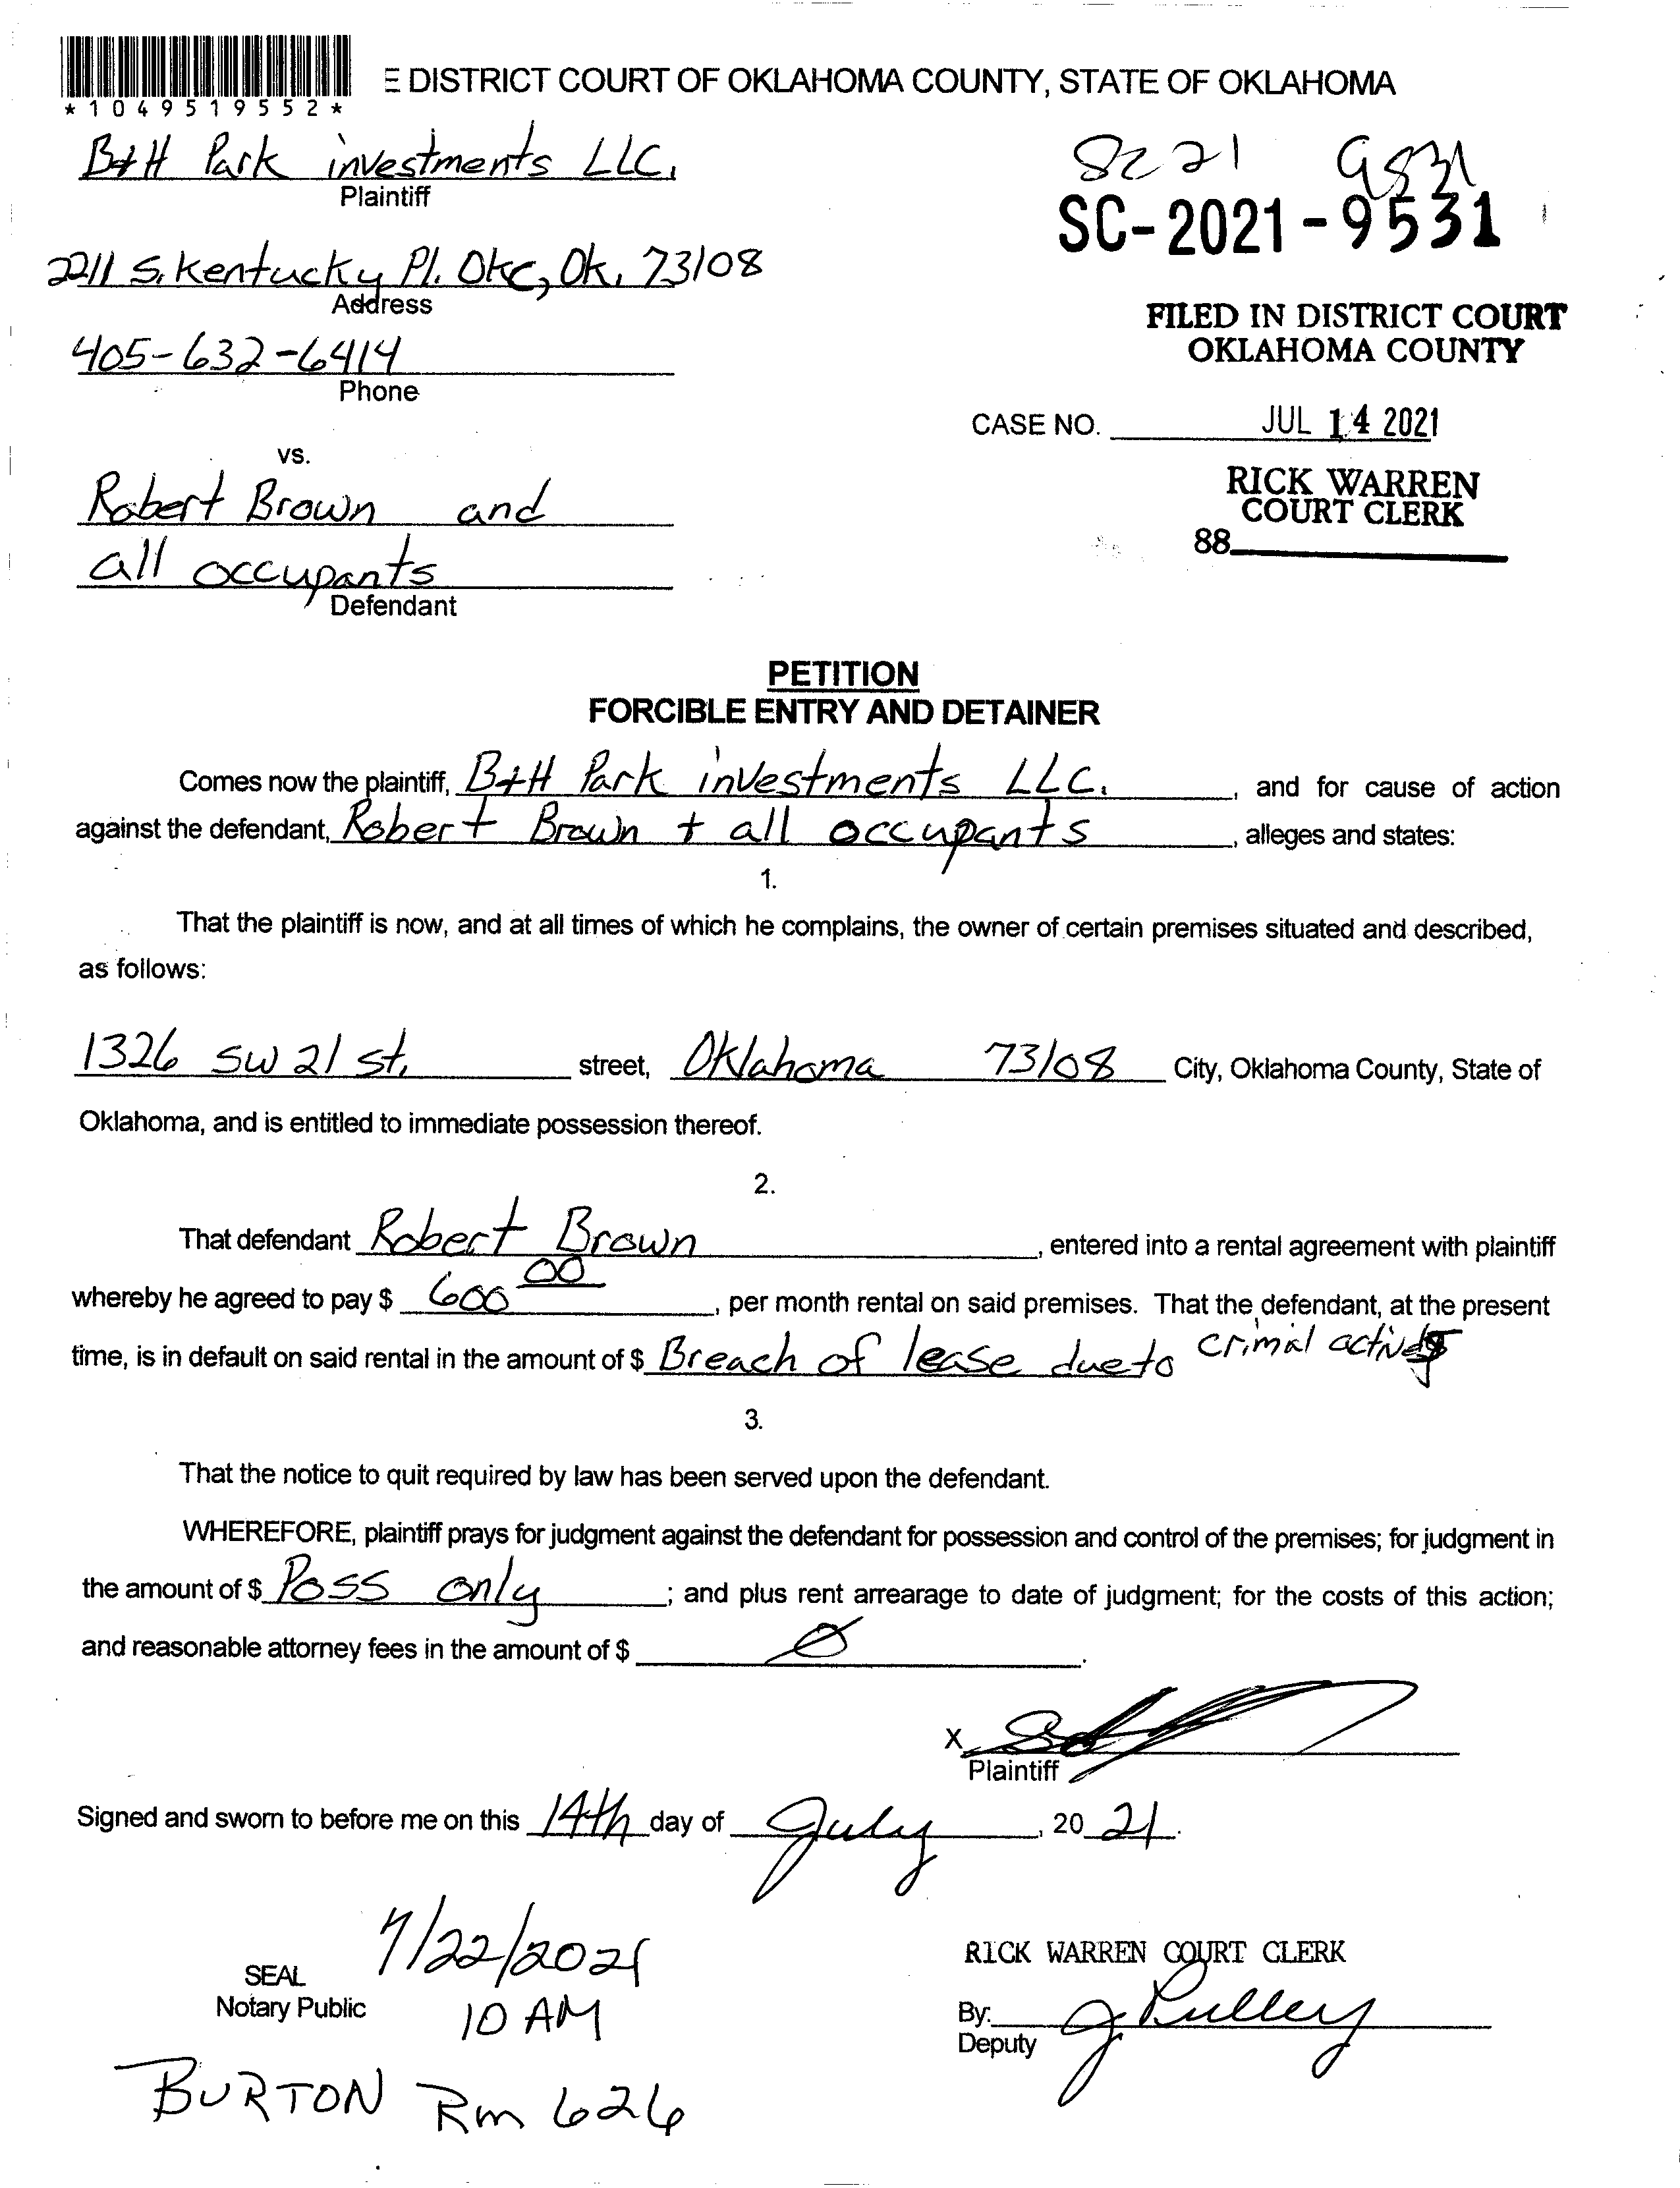 *1049519552*
E DISTRICT COURT OF OKLAHOMA COUNTY, STATE OF OKLAHOMA
B+H Park investments LLC.
Plaintiff
SC 21 9531
SC-2021-9531
2211 S. Kentucky Pl. Okc, Ok. 73108
Address
FILED IN DISTRICT COURT
OKLAHOMA COUNTY
405-632-6414
Phone
CASE NO. JUL 14 2021
vs.
RICK WARREN
COURT CLERK
88
Robert Brown and
all occupants
Defendant
PETITION
FORCIBLE ENTRY AND DETAINER
Comes now the plaintiff, B+H Park investments LLC. , and for cause of action
against the defendant, Robert Brown + all occupants , alleges and states:
1.
That the plaintiff is now, and at all times of which he complains, the owner of certain premises situated and described,
as follows:
1326 SW 21 st. street, Oklahoma 73108 City, Oklahoma County, State of
Oklahoma, and is entitled to immediate possession thereof.
2.
That defendant Robert Brown , entered into a rental agreement with plaintiff
whereby he agreed to pay $ 600 00 , per month rental on said premises. That the defendant, at the present
time, is in default on said rental in the amount of $ Breach of lease due to crimial
3.
That the notice to quit required by law has been served upon the defendant.
WHEREFORE, plaintiff prays for judgment against the defendant for possession and control of the premises; for judgment in
the amount of $ Poss only ; and plus rent arrearage to date of judgment; for the costs of this action;
and reasonable attorney fees in the amount of $ Ø .
X
Plaintiff
Signed and sworn to before me on this 14th day of July , 20 21.
7/22/2021
SEAL
Notary Public
10 AM
BURTON Rm 626
RICK WARREN COURT CLERK
By: J Pulley
Deputy